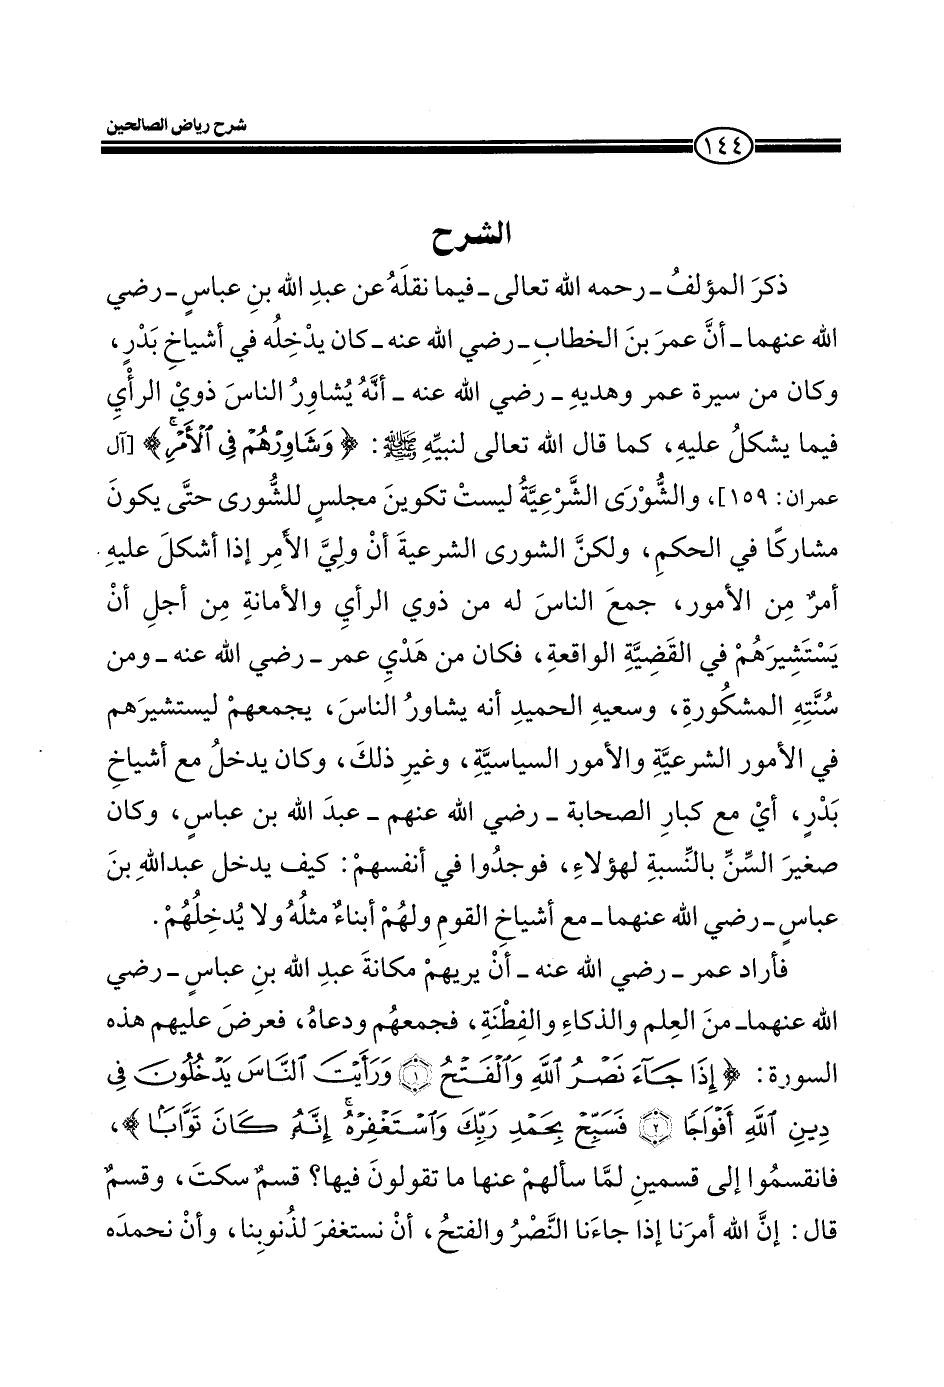 شرح رياض الصالحين
١٤٤
الشرح
ذكرَ المؤلفُ ـ رحمه الله تعالى ـ فيما نقلَهُ عن عبدِ الله بنِ عباسٍ ـ رضي
الله عنهما ـ أنَّ عمرَ بنَ الخطابِ ـ رضي الله عنه ـ كان يدْخِلُه في أشياخِ بَدْرٍ،
وكان من سيرة عمر وهديهِ ـ رضي الله عنه ـ أنَّهُ يُشاوِرُ الناسَ ذويْ الرأْيِ
فيما يشكلُ عليهِ، كما قال الله تعالى لنبيِّهِ ﷺ: ﴿ وَشَاوِرْهُمْ فِي ٱلْأَمْرِ ﴾ [آل
عمران: ١٥٩]، والشُّوْرَى الشَّرْعِيَّةُ ليستْ تكوينَ مجلسٍ للشُّورى حتَّى يكونَ
مشاركًا في الحكمِ، ولكنَّ الشورى الشرعيةَ أنْ وليَّ الأمرِ إذا أشكلَ عليهِ
أمرٌ مِن الأمور، جمعَ الناسَ له من ذوي الرأيِ والأمانةِ مِن أجلِ أنْ
يَسْتَشِيرَهُمْ في القَضِيَّةِ الواقعةِ، فكان من هَدْيِ عمر ـ رضي الله عنه ـ ومن
سُنَّتِهِ المشكُورةِ، وسعيهِ الحميدِ أنه يشاورُ الناسَ، يجمعهمْ ليستشيرَهم
في الأمورِ الشرعيَّةِ والأمورِ السياسيَّةِ، وغيرِ ذلكَ، وكان يدخلُ مع أشياخِ
بَدْرٍ، أيْ مع كبارِ الصحابة ـ رضي الله عنهم ـ عبدَ الله بن عباسٍ، وكان
صغيرَ السِّنِّ بالنِّسبةِ لهؤلاءِ، فوجدُوا في أنفسهمْ: كيف يدخل عبدالله بنَ
عباسٍ ـ رضي الله عنهما ـ مع أشياخِ القومِ ولهُمْ أبناءٌ مثلُهُ ولا يُدخِلُهُمْ.
فأراد عمر ـ رضي الله عنه ـ أنْ يريهمْ مكانةَ عبدِ الله بنِ عباسٍ ـ رضي
الله عنهما ـ منَ العِلم والذكاءِ والفِطْنَةِ، فجمعهُم ودعاهُ، فعرضَ عليهم هذه
السورة: ﴿ إِذَا جَآءَ نَصْرُ ٱللَّهِ وَٱلْفَتْحُ ۝١ وَرَأَيْتَ ٱلنَّاسَ يَدْخُلُونَ فِي
دِينِ ٱللَّهِ أَفْوَاجًا ۝٢ فَسَبِّحْ بِحَمْدِ رَبِّكَ وَٱسْتَغْفِرْهُ إِنَّهُ كَانَ تَوَّابًا ﴾،
فانقسمُوا إلى قسمينِ لمَّا سألهمْ عنها ما تقولونَ فيها؟ قسمٌ سكتَ، وقسمٌ
قال: إنَّ الله أمرَنا إذا جاءَنا النَّصْرُ والفتحُ، أنْ نستغفرَ لذُنوبِنا، وأنْ نحمدَه